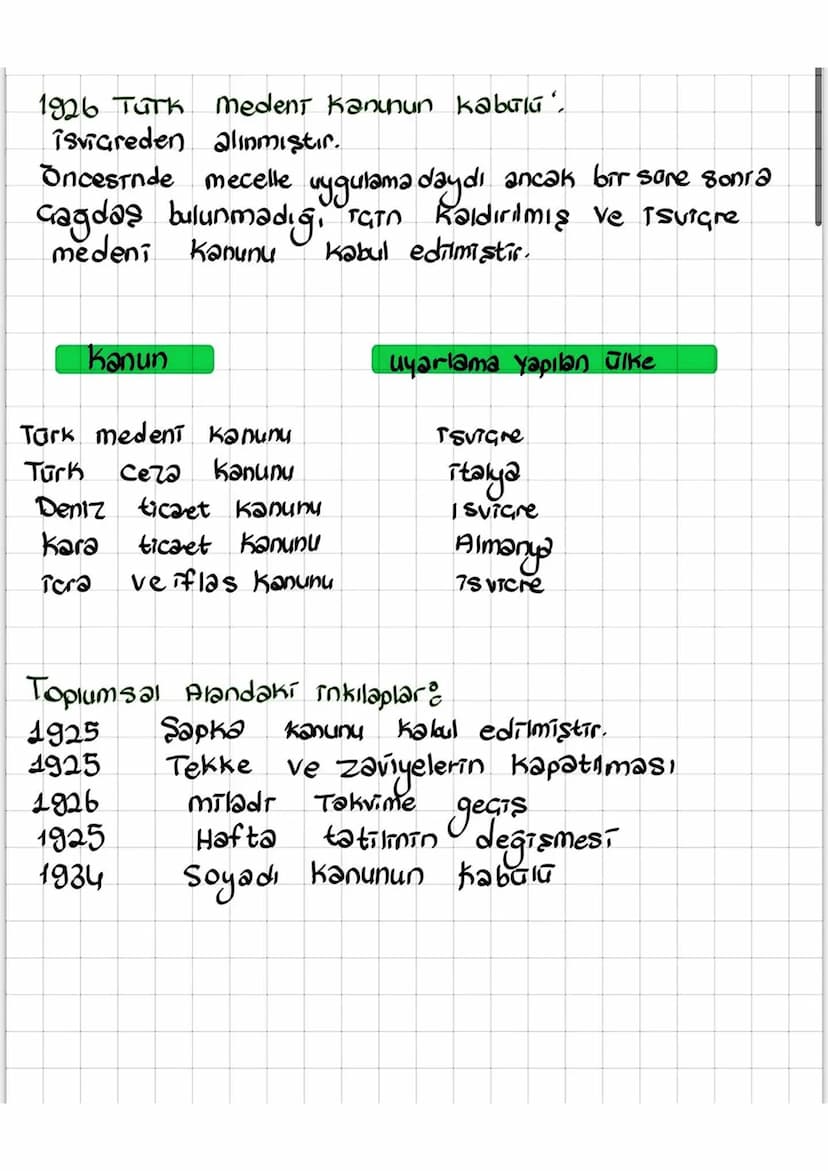 1926 Türk medeni kanunun kabulü'.
isviçreden alınmıştır.
Öncesinde mecelle uygulamadaydı ancak bir süre sonra
çağdaş bulunmadığı için kaldırılmış ve isviçre
medeni kanunu kabul edilmiştir.
Kanun uyarlama yapılan ülke
Türk medeni kanunu isviçre
Türk ceza kanunu italya
Deniz ticaet kanunu isviçre
Kara ticaet kanunu Almanya
icra ve iflas kanunu isvicre
Toplumsal Alandaki inkılaplar:
1925 Şapka kanunu kabul edilmiştir.
1925 Tekke ve zaviyelerin kapatılması
1926 miladi Takvime geçiş
1925 Hafta tatilinin değişmesi
1934 Soyadı kanunun kabülü